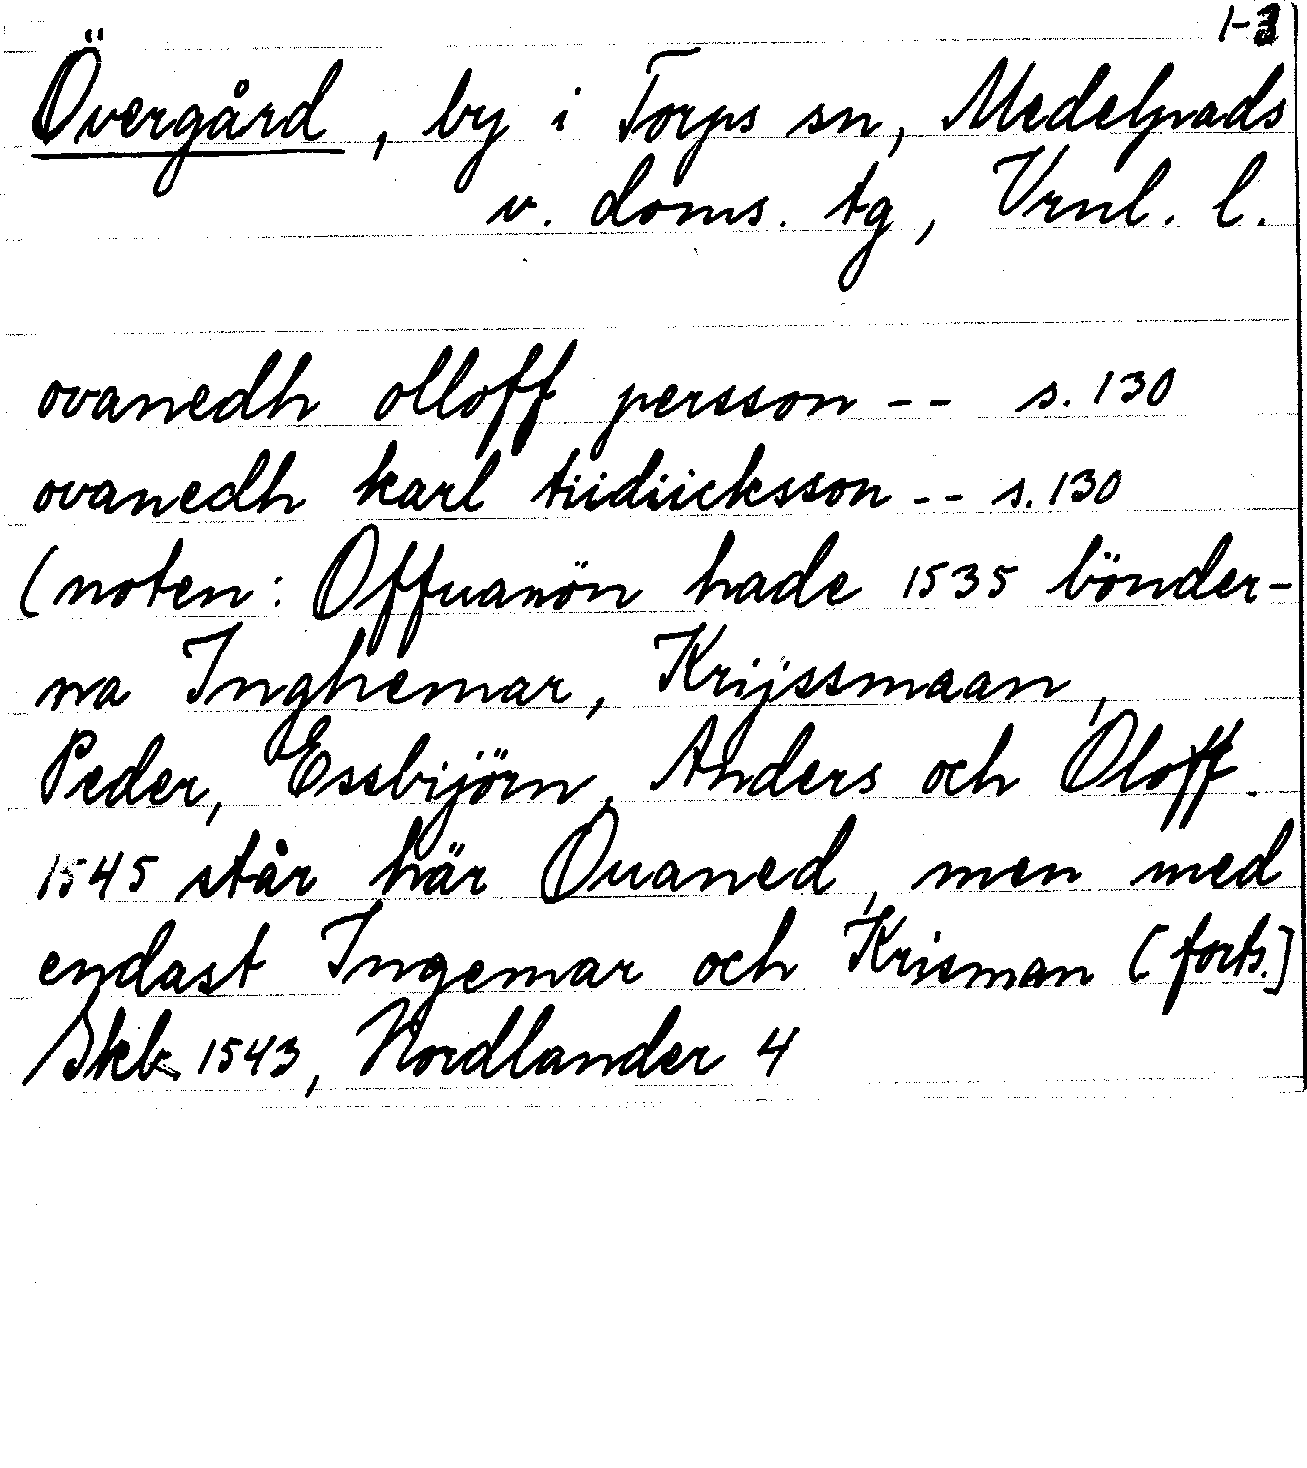 1-3
Övergård, by i Torps sn, Medelpads
v. doms. tg, Vrnl. l.
ovanedh olloff persson -- s. 130
ovanedh karl tiidiicksson -- s. 130
(noten: Offuanön hade 1535 bönder-
na Inghemar, Krijssmaan,
Peder, Essbijörn, Anders och Oloff.
1545 står här Ouaned, men med
endast Ingemar och Krisman (forts.]
Skb. 1543, Nordlander 4